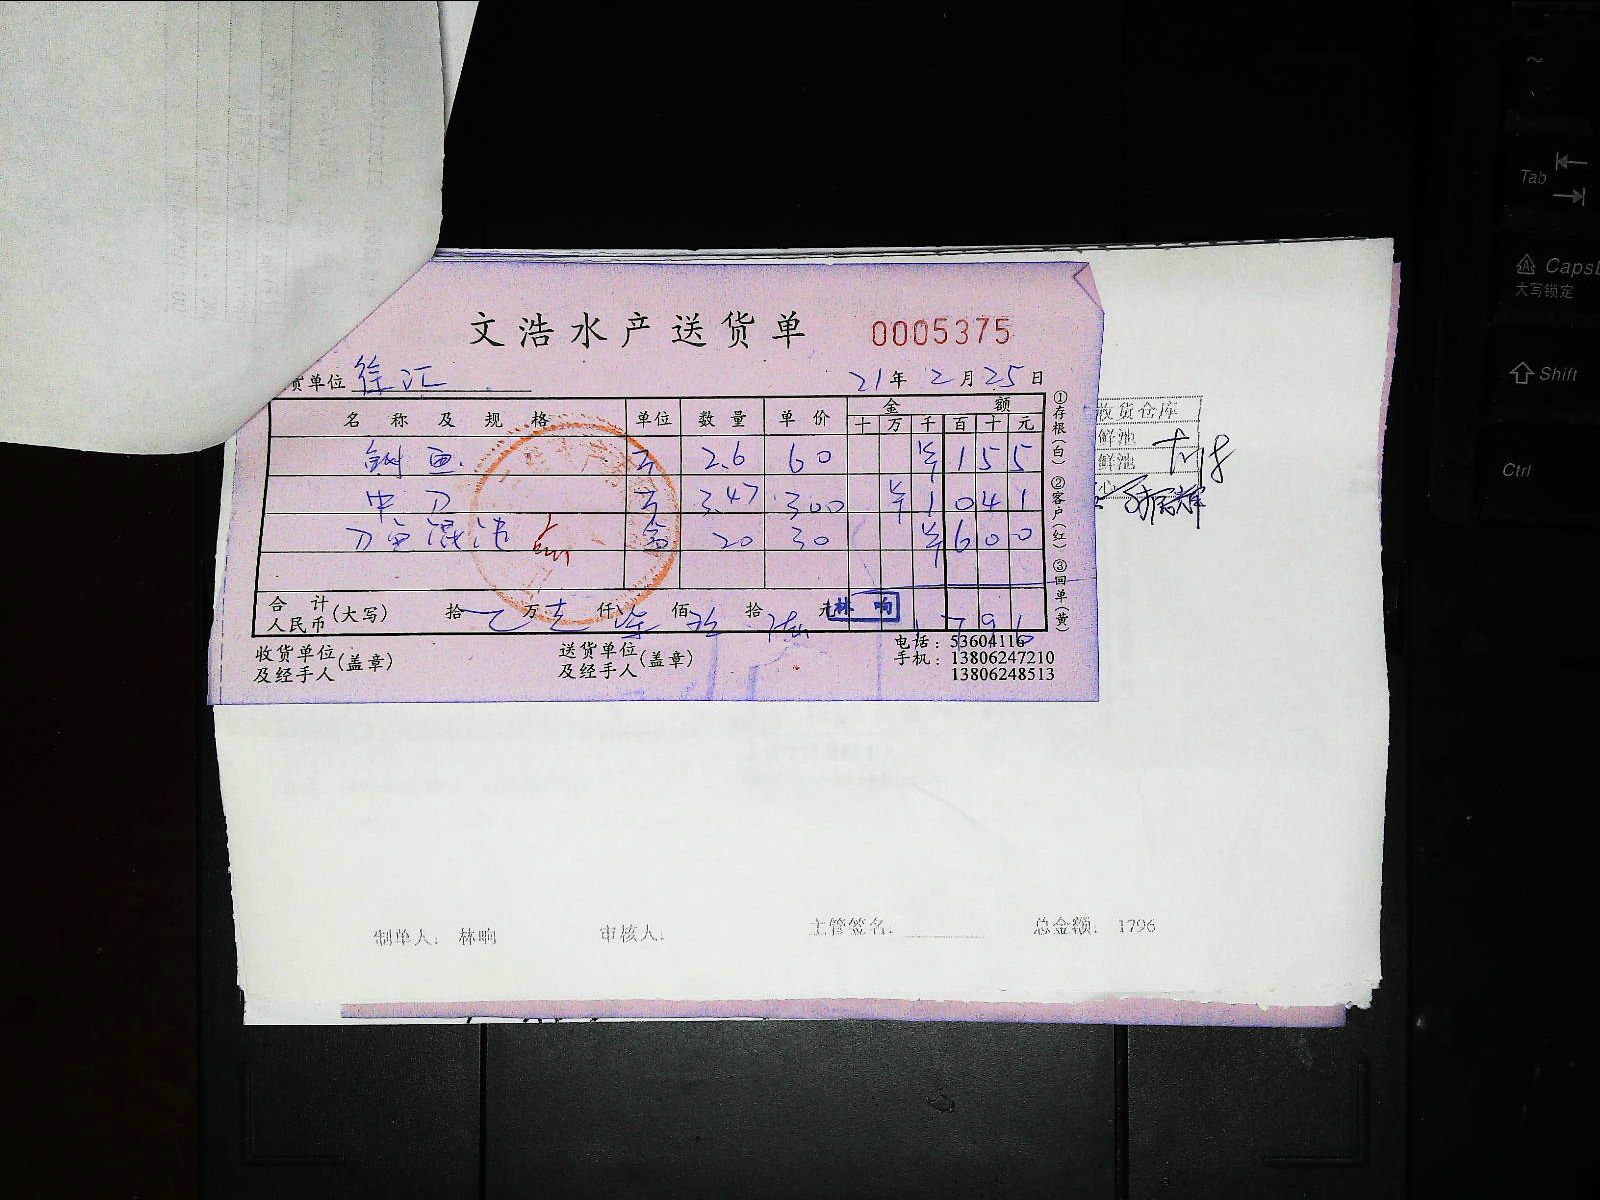 文浩水产送货单 0005375
货单位 徐汇 21年2月25日
名称及规格 单位 数量 单价 金额
十 万 千 百 十 元
鱼 2.6 60 ¥ 1 5 5
中刀 3.47 300 ¥ 1 0 4 1
刀鱼混沌 盒 20 30 ¥ 6 0 0
合计
人民币
(大写) 拾 万 仟 佰 拾 元 林响 1 7 9 6
收货单位
及经手人
(盖章)
送货单位
及经手人
(盖章)
电话:53604116
手机:13806247210
13806248513
①存根(白) ②客户(红) ③回单(黄)
收货仓库
鲜池
鲜池
心
制单人: 林响 审核人: 主管签名: 总金额: 1796
~
Tab
Caps
大写锁定
Shift
Ctrl